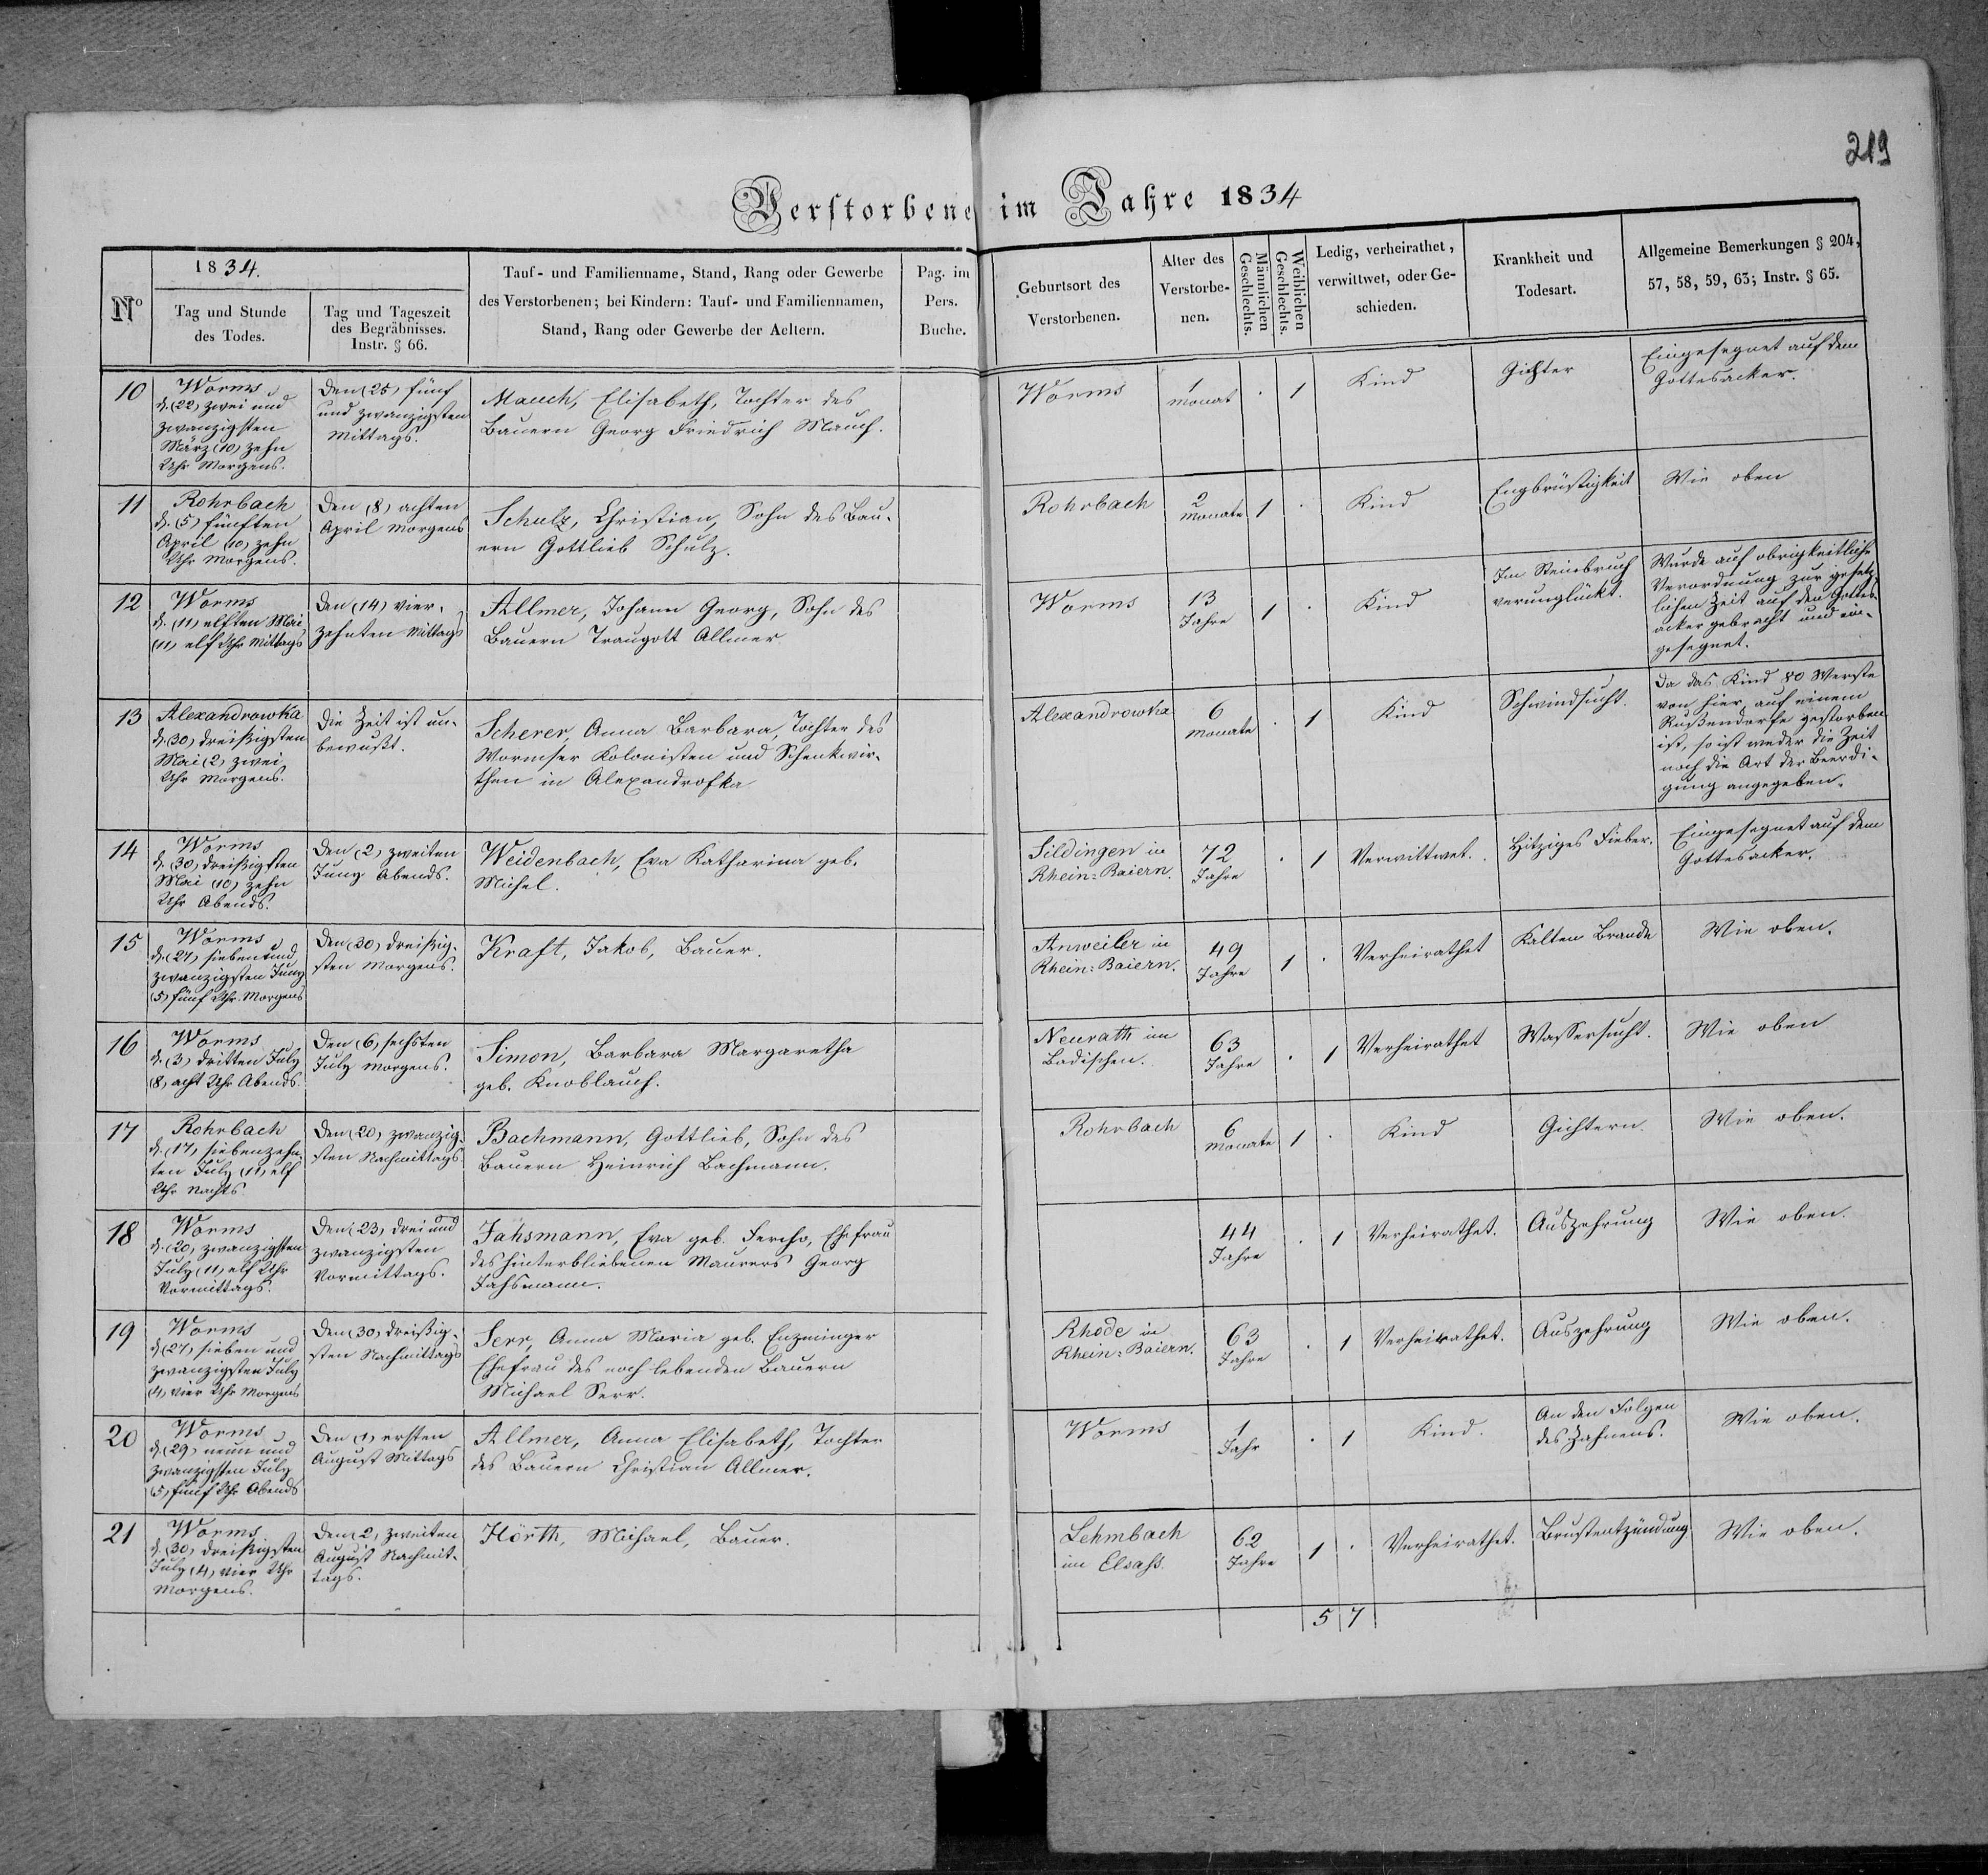 219
Verstorbene im Jahre 1834
No
1834.
Tag und Stunde
des Todes.
Tag und Tageszeit
des Begräbnisses.
Instr. § 66.
Tauf- und Familienname, Stand, Rang oder Gewerbe
des Verstorbenen; bei Kindern: Tauf- und Familiennamen,
Stand, Rang oder Gewerbe der Aeltern.
Pag. im
Pers.
Buche.
Geburtsort des
Verstorbenen.
Alter des
Verstorbe-
nen.
Männlichen
Geschlechts.
Weiblichen
Geschlechts.
Ledig, verheirathet,
verwittwet, oder Ge-
schieden.
Krankheit und
Todesart.
Allgemeine Bemerkungen § 204,
57, 58, 59, 63; Instr. § 65.
10
Worms
d. (22) zwei und
zwanzigsten
März (10) zehn
Uhr Morgens.
Den (25) fünf
und zwanzigsten
Mittags.
Mauch, Elisabeth, Tochter des
Bauern Georg Friedrich Mauch.
Worms
1
Monat
. 1
Kind
Gichter
Eingesegnet auf dem
Gottesacker.
11
Rohrbach
d. (5) fünften
April (10) zehn
Uhr Morgens.
Den (8) achten
April Morgens
Schulz, Christian, Sohn des Bau-
ern Gottlieb Schulz.
Rohrbach
2
Monate
1 .
Kind
Engbrüstigkeit
Wie oben
12
Worms
d. (11) elften Mai
(11) elf Uhr Mittags
Den (14) vier-
zehnten Mittags
Allmer, Johann Georg, Sohn des
Bauern Traugott Allmer
Worms
13
Jahre
1 .
Kind
Im Steinbruch
verunglückt.
Wurde auf obrigkeitliche
Verordnung zur gesetz-
lichen Zeit auf den Gottes-
acker gebracht und ein-
gesegnet.
13
Alexandrowka
d. (30) dreißigsten
Mai (2) zwei
Uhr Morgens.
Die Zeit ist un-
bewußt.
Scherer, Anna Barbara, Tochter des
Wormser Kolonisten und Schenkwir-
then in Alexandrofka
Alexandrowka
6
Monate
. 1
Kind
Schwindsucht.
Da das Kind 80 Werste
von hier, auf einem
Rußendorfe gestorben
ist, so ist weder die Zeit
noch die Art der Beerdi-
gung angegeben.
14
Worms
d. (30) dreißigsten
Mai (10) zehn
Uhr Abends.
Den (2) zweiten
Juny Abends.
Weidenbach, Eva Katharina geb.
Michel.
Sildingen in
Rhein-Baiern.
72
Jahre
. 1
Verwittwet.
Hitziges Fieber.
Eingesegnet auf dem
Gottesacker.
15
Worms
d. (27) sieben und
zwanzigsten Juny
(5) fünf Uhr Morgens
Den (30) dreißig-
sten Morgens.
Kraft, Jakob, Bauer.
Anweiler in
Rhein-Baiern.
49
Jahre
1 .
Verheirathet
Kalten Brande
Wie oben.
16
Worms
d. (3) dritten July
(8) acht Uhr Abends
Den (6) sechsten
July Morgens.
Simon, Barbara Margaretha
geb. Knoblauch.
Neurath im
Badischen.
63
Jahre
. 1
Verheirathet
Wassersucht.
Wie oben
17
Rohrbach
d. (17) siebenzehn-
ten July (11) elf
Uhr Nachts
Den (20) zwanzig-
sten Nachmittags
Bachmann, Gottlieb, Sohn des
Bauern Heinrich Bachmann.
Rohrbach
6
Monate
1 .
Kind
Gichtern.
Wie oben.
18
Worms
d. (20) zwanzigsten
July (11) elf Uhr
Vormittags.
Den (23) drei und
zwanzigsten
Vormittags.
Jahsmann, Eva geb. Fercho, Ehefrau
des hinterbliebenen Maurers Georg
Jahsmann.
44
Jahre
. 1
Verheirathet.
Auszehrung
Wie oben.
19
Worms
d. (27) sieben und
zwanzigsten July
(4) vier Uhr Morgens
Den (30) dreißig-
sten Nachmittags
Serr, Anna Maria geb. Enzminger
Ehefrau des noch lebenden Bauern
Michael Serr.
Rhode in
Rhein-Baiern.
63
Jahre
. 1
Verheirathet.
Auszehrung
Wie oben.
20
Worms
d. (29) neun und
zwanzigsten July
(5) fünf Uhr Abends
Den (1) ersten
August Mittags
Allmer, Anna Elisabeth, Tochter
des Bauern Christian Allmer.
Worms
1
Jahr
. 1
Kind.
An den Folgen
des Zahnens.
Wie oben.
21
Worms
d. (30) dreißigsten
July (4) vier Uhr
Morgens.
Den (2) zweiten
August Nachmit-
tags.
Hörth, Michael, Bauer.
Lehmbach
im Elsahs.
62
Jahre
1 .
Verheirathet.
Brustentzündung
Wie oben.
5 7